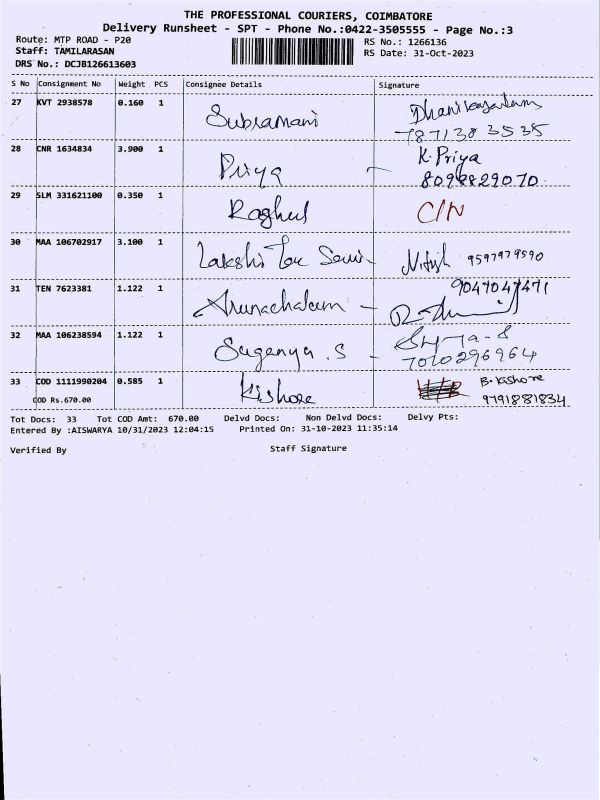 THE PROFESSIONAL COURIERS, COIMBATORE
Delivery Runsheet - SPT - Phone No.:0422-3505555 - Page No.:3
Route: MTP ROAD - P20
RS No.: 1266136
Staff: TAMILARASAN
RS Date: 31-Oct-2023
DRS No.: DCJB126613603
S No Consignment No Weight PCS Consignee Details Signature
27 KVT 2938578 0.160 1 Subramani
7871383535
28 CNR 1634834 3.900 1 Priya K. Priya
8098829070
29 SLM 331621100 0.350 1 Raghul C/N
30 MAA 106702917 3.100 1 Nitysh 9597979590
31 TEN 7623381 1.122 1 Arunachalam 9047047471
32 MAA 106238594 1.122 1 Suganya . S
7010296964
33 COD 1111990204 0.585 1 Kishore B. Kishore
COD Rs.670.00 9791881834
Tot Docs: 33 Tot COD Amt: 670.00 Delvd Docs: Non Delvd Docs: Delvy Pts:
Entered By :AISWARYA 10/31/2023 12:04:15 Printed On: 31-10-2023 11:35:14
Verified By Staff Signature